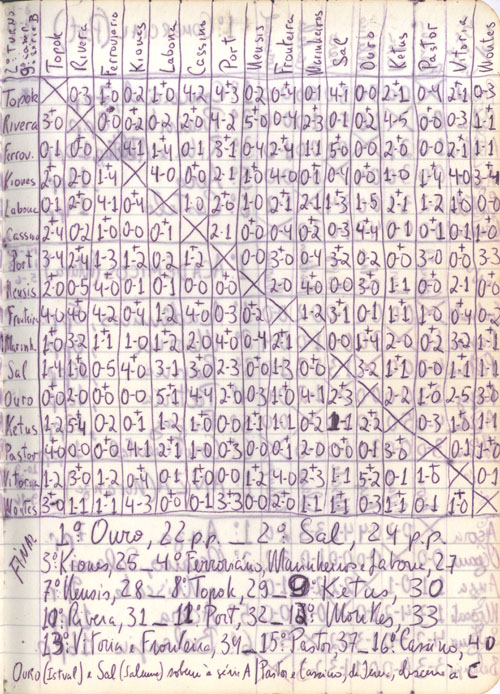 2º TURNO
9º CAMP. SÉRIE B
Topok Rivera Ferroviário Kiones Labone Cassino Port Neusis Fronteira Marinheiros Sal Ouro Ketus Pastor Vitória Montes
Topok 0-3 1-0 0-2 1-0 4-2 4-3 0-2 0-4 0-1 4-1 0-0 2-1 0-4 2-1 0-3
Rivera 3-0 0-0 0-2 0-2 2-0 4-2 5-0 0-4 2-3 0-1 0-2 4-5 0-0 0-3 1-1
Ferrov. 0-1 0-0 4-1 1-4 0-1 3-1 0-4 2-4 1-1 5-0 0-0 2-0 0-0 2-1 1-1
Kiones 2-0 2-0 1-4 4-0 0-0 2-1 1-0 4-0 0-1 0-4 0-0 1-0 1-4 4-0 3-4
Labone 0-1 2-0 4-1 0-4 1-0 2-0 1-0 2-1 2-1 1-3 1-5 2-1 1-2 1-0 0-0
Cassino 2-4 0-2 1-0 0-0 0-1 2-1 0-0 0-4 0-2 0-3 4-4 0-1 0-1 0-1 1-0
Port 3-4 2-4 1-3 1-2 0-2 1-2 0-0 3-0 0-4 3-2 0-2 0-0 3-0 0-0 3-3
Neusis 2-0 0-5 4-0 0-1 0-1 0-0 0-0 2-0 4-0 0-0 3-0 1-1 0-0 2-1 0-0
Fronteira 4-0 4-0 4-2 0-4 1-2 4-0 0-3 0-2 1-2 3-1 0-1 1-1 1-0 0-4 0-2
Marinh. 1-0 3-2 1-1 1-0 1-2 2-0 4-0 0-4 2-1 0-0 1-4 2-0 0-2 3-2 1-1
Sal 1-4 1-0 0-5 4-0 3-1 3-0 2-3 0-0 1-3 0-0 3-2 1-1 0-0 1-1 1-1
Ouro 0-0 2-0 0-0 0-0 5-1 4-4 2-0 0-3 1-0 4-1 2-3 2-2 1-0 2-5 3-0
Ketus 1-2 5-4 0-2 0-1 1-2 1-0 0-0 1-1 1-1 0-2 1-1 2-2 0-3 1-0 1-1
Pastor 4-0 0-0 0-0 4-1 2-1 1-0 0-3 0-0 0-1 2-0 0-0 0-1 3-0 0-1 1-0
Vitória 1-2 3-0 1-2 0-4 0-1 1-0 0-0 1-2 4-0 2-3 1-1 5-2 0-1 1-0 0-1
Montes 3-0 1-1 1-1 4-3 0-0 0-1 3-3 0-0 2-0 1-1 1-1 0-3 1-1 0-1 1-0
FINAL
1º Ouro, 22 p.p. _ 2º Sal, 24 p.p.
3º Kiones, 25 _ 4º Ferroviário, Marinheiros e Labone, 27
7º Neusis, 28 _ 8º Topok, 29 _ 9º Ketus, 30
10º Rivera, 31 _ 11º Port, 32 _ 12º Montes, 33
13º Vitória e Fronteira, 34 _ 15º Pastor, 37 _ 16º Cassino, 40
OURO (Istval) e Sal (Salume) sobem à série A